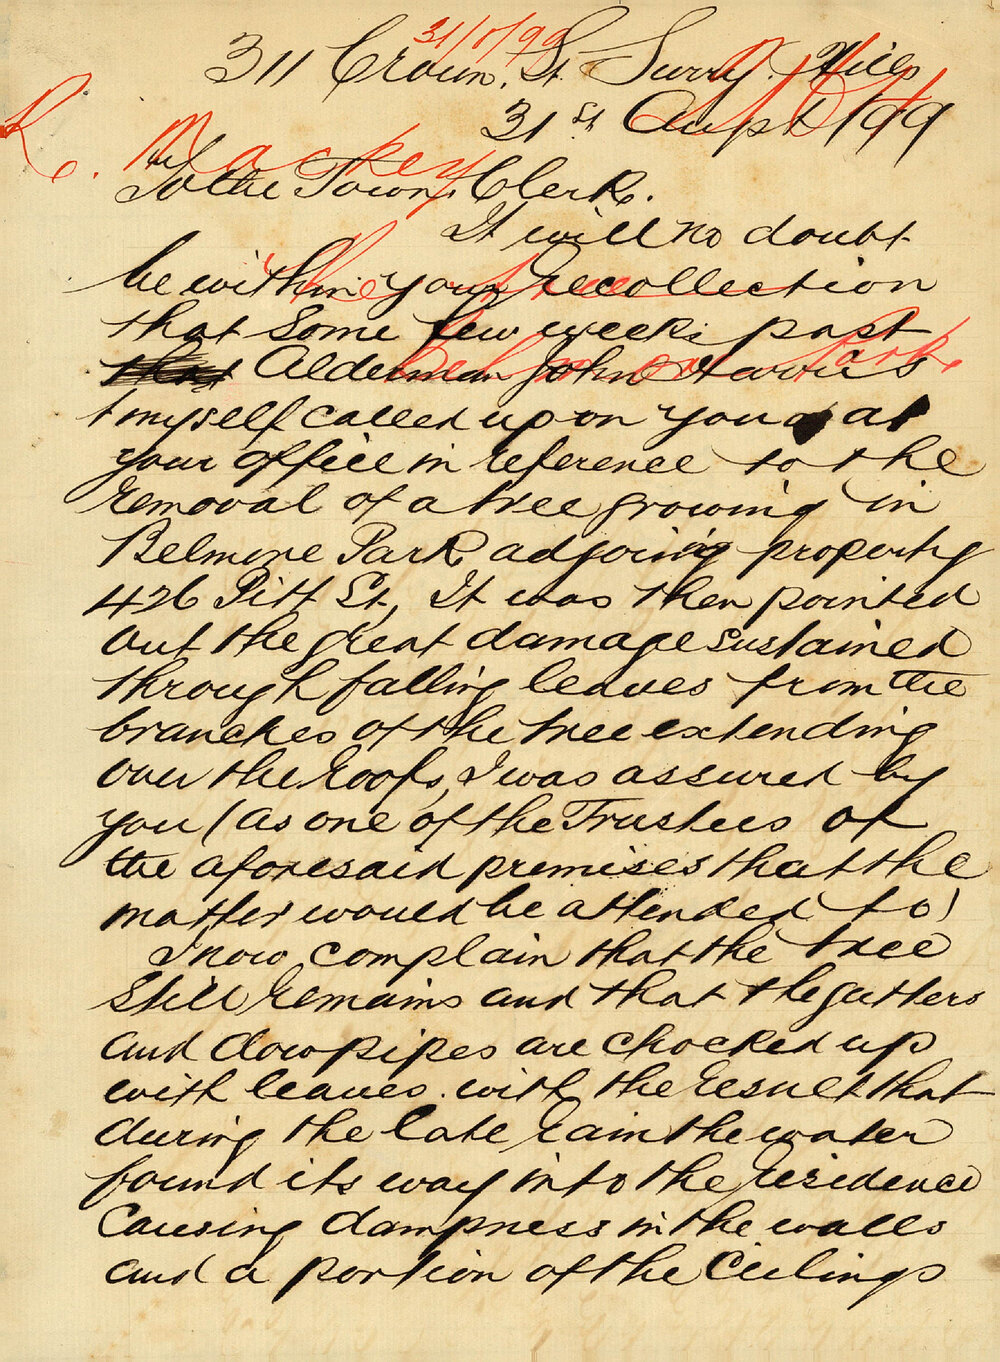 31/8/99
311 Crown St Surry Hills
31st Augst /99
R. Mackey
To the Town Clerk.
It will no doubt
be within your recollection
that some few weeks past
that Alderman John Harris
& myself called upon you at
your office in reference to the
removal of a tree growing in
Belmore Park adjoining property
426 Pitt St, It was then pointed
out the great damage sustained
through falling leaves from the
branches of the tree extending
over the roofs, I was assured by
you (as one of the Trustees of
the aforesaid premises that the
matter would be attended to)
I now complain that the tree
still remains and that the gutters
and dowpipes are chocked up
with leaves with the result that
during the late rain the water
found its way into the residence
causing dampness in the walls
and a portion of the Ceilings
Re tree
Belmore Park